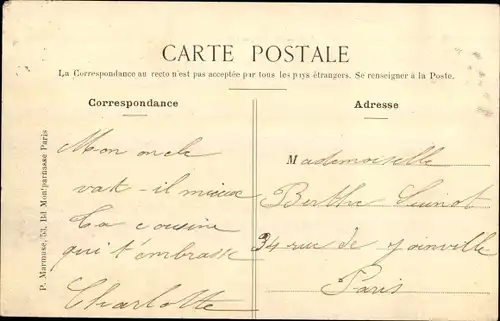 CARTE POSTALE
La Correspondance au recto n'est pas acceptée par tous les pays étrangers. Se renseigner à la Poste.
Correspondance
Mon oncle
vat-il mieux
Ta cousine
qui t'embrasse
Charlotte
Adresse
Mademoiselle
Berthe
34 rue de Joinville
Paris
P. Marmuse, 53, Bd Montparnasse Paris